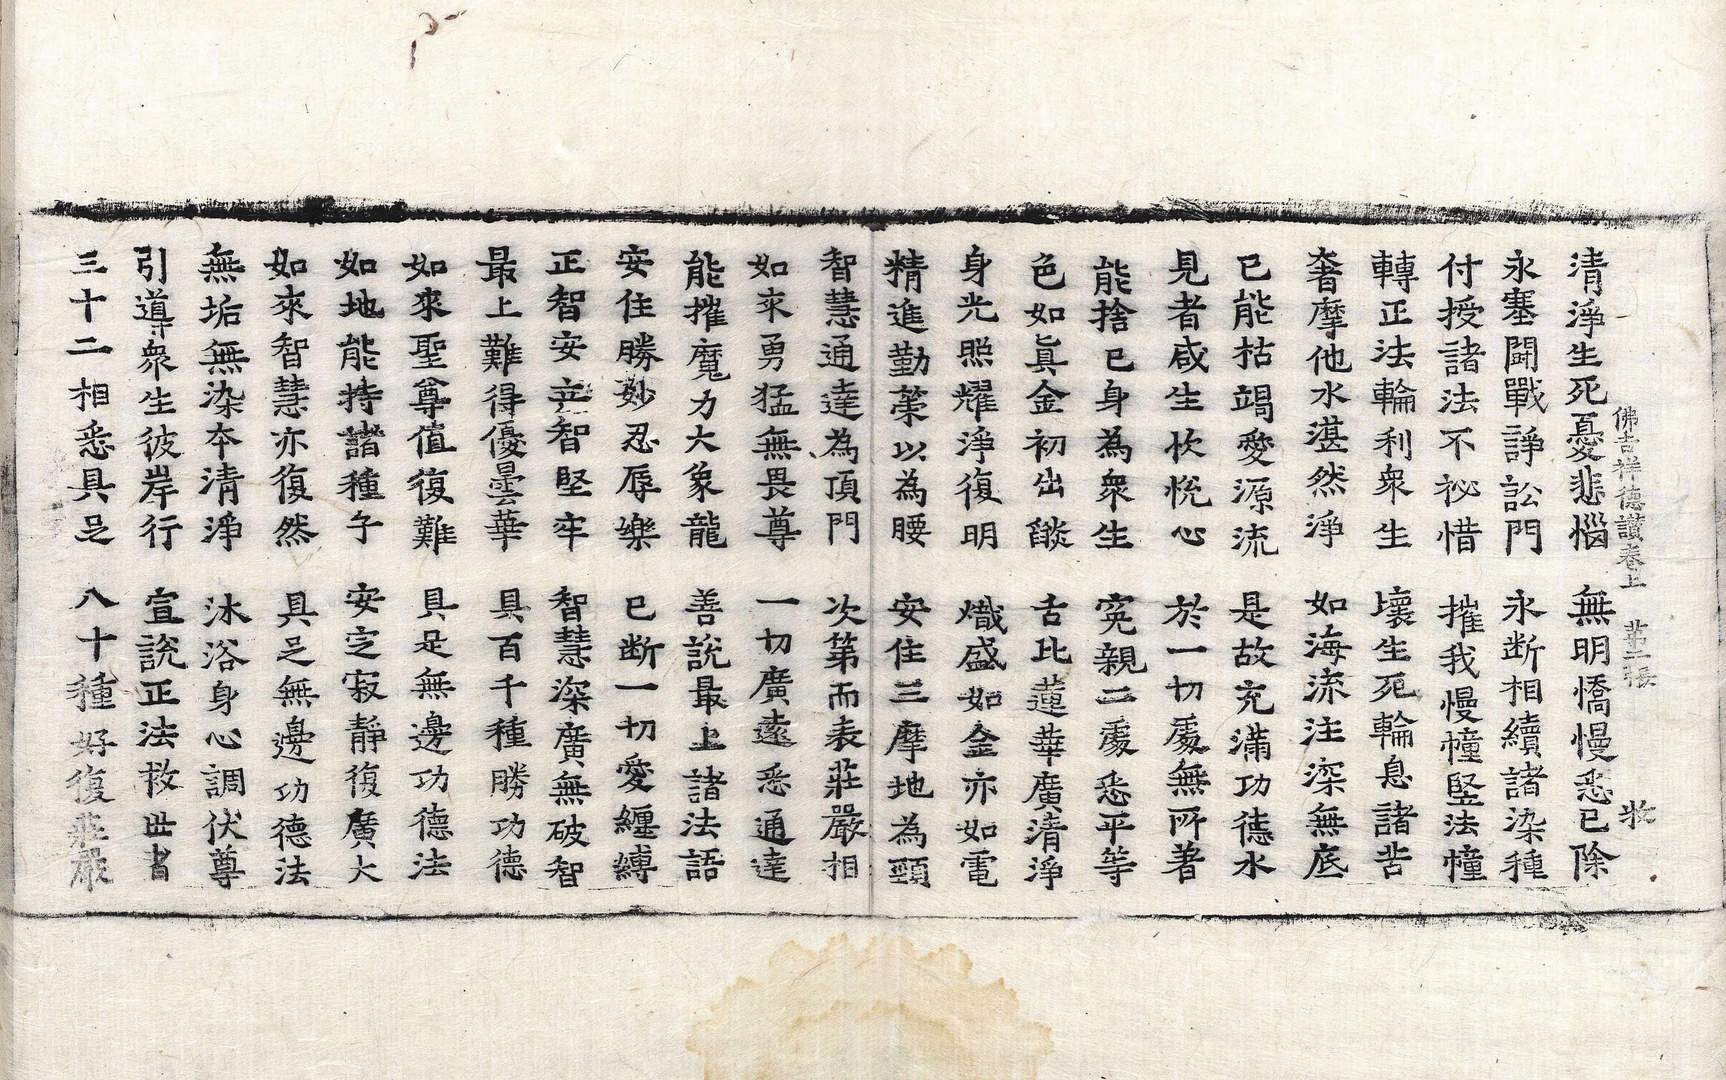 清淨生死憂悲惱 無明憍慢悉已除
佛吉祥德讚卷上 苐二張 牧
永塞鬪戰諍訟門 永断相續諸染種
付授諸法不祕惜 摧我慢幢竪法幢
轉正法輪利衆生 壞生死輪息諸苦
奢摩他水湛然淨 如海流注深無底
已能枯竭愛源流 是故充滿功德水
見者咸生忻悅心 於一切處無所著
能捨已身為衆生 寃親二處悉平等
色如真金初出燄 舌比蓮華廣清淨
身光照耀淨復明 熾盛如金亦如電
精進勤策以為腰 安住三摩地為頸
智慧通達為頂門 次第而表莊嚴相
如來勇猛無畏尊 一切廣遠悉通達
能摧魔力大象龍 善說最上諸法語
安住勝妙忍辱樂 已断一切愛纏縛
正智安立智堅牢 智慧深廣無破智
最上難得優曇華 具百千種勝功德
如來聖尊值復難 具足無邊功德法
如地能持諸種子 安定寂靜復廣大
如來智慧亦復然 具足無邊功德法
無垢無染夲清淨 沐浴身心調伏尊
引導衆生彼岸行 宣說正法救世者
三十二相悉具足 八十種好復莊嚴